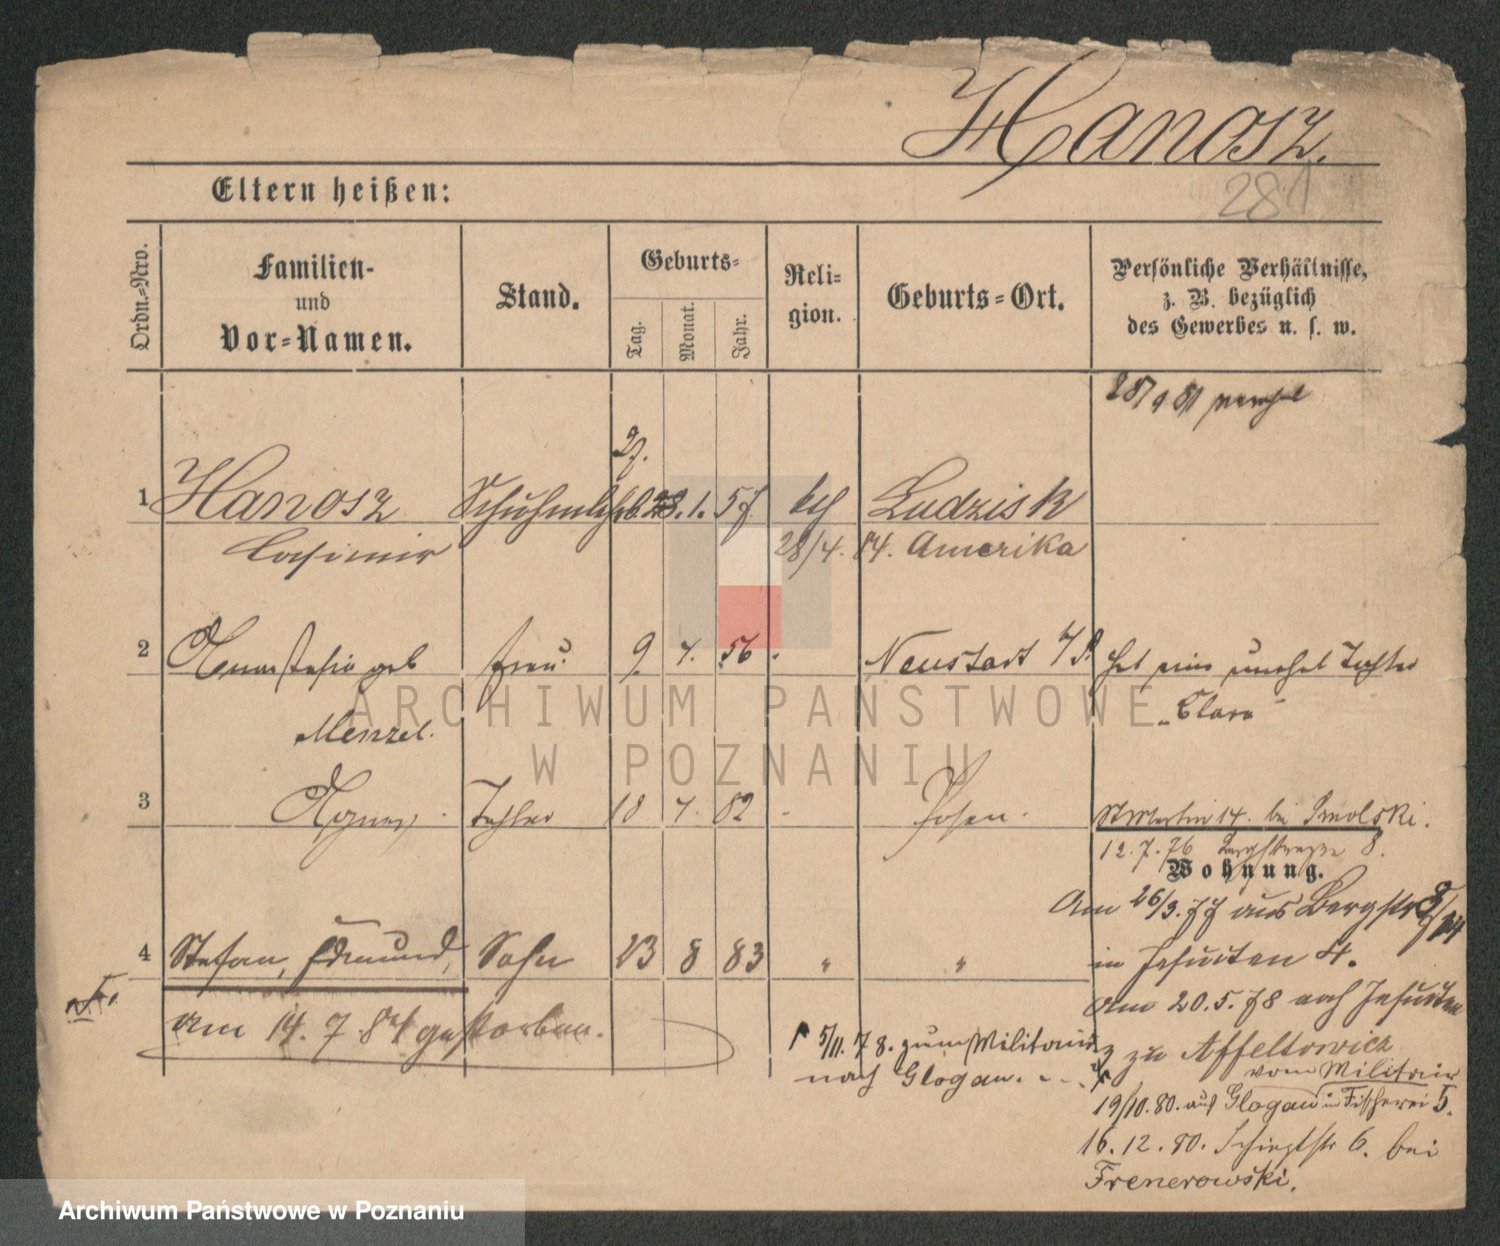 Hanosz.
281
Eltern heißen:
Ordn.=Nro.
Familien-
und
Vor=Namen.
Stand.
Geburts=
Tag.
Monat.
Jahr.
Reli=
gion.
Geburts=Ort.
Persönliche Verhältnisse,
z. B. bezüglich
des Gewerbes u. s. w.
28/9 81
27.
1 Hanosz 28. 1. 57 kth Ludzisk
Casimir 28/4. 84. Amerika
2 geb Frau. 9. 7. 56 Neustadt hat eine unehel Tochter
Menzel. "Clara"
3 Agnes Tochter 18 7. 82 Posen. St Martin 14. bei Smolski.
12. 7. 76 Bergstraße 8.
Wohnung.
Am 26/3. 77 aus Bergstr
4 Stefan, Edmund, Sohn 23 8 83 " " in Jesuiten 4.
am 14. 7 84 gestorben.
Am 20. 5. 78 nach Jesuiten
5/11. 78. zum Militair
zu Affeltowicz
nach Glogau.
vom Militair
19/10. 80. aus Glogau in Fischerei 5.
16. 12. 80. 6. bei
Frenerowski.
ARCHIWUM PAŃSTWOWE
W POZNANIU
Archiwum Państwowe w Poznaniu